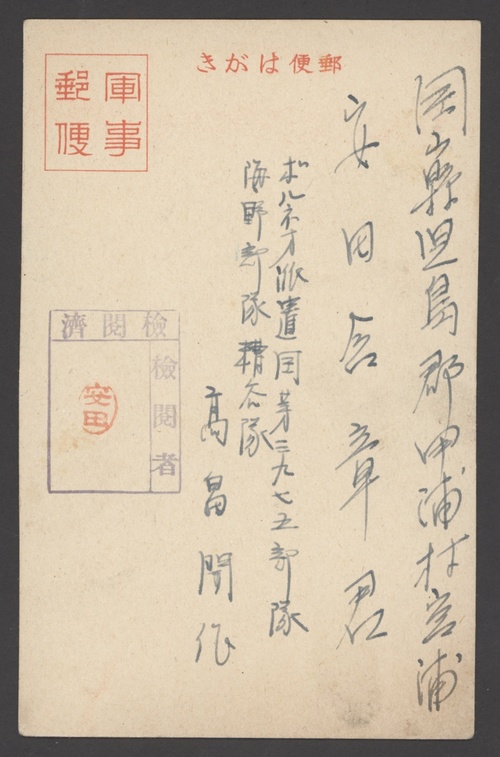 郵便はがき
軍事郵便
岡山縣児島郡甲浦村宮浦
安田 章君
ボルネオ派遣岡第三九七五部隊
海野部隊糟谷隊
高畠開作
檢閲濟
檢閲者
安田